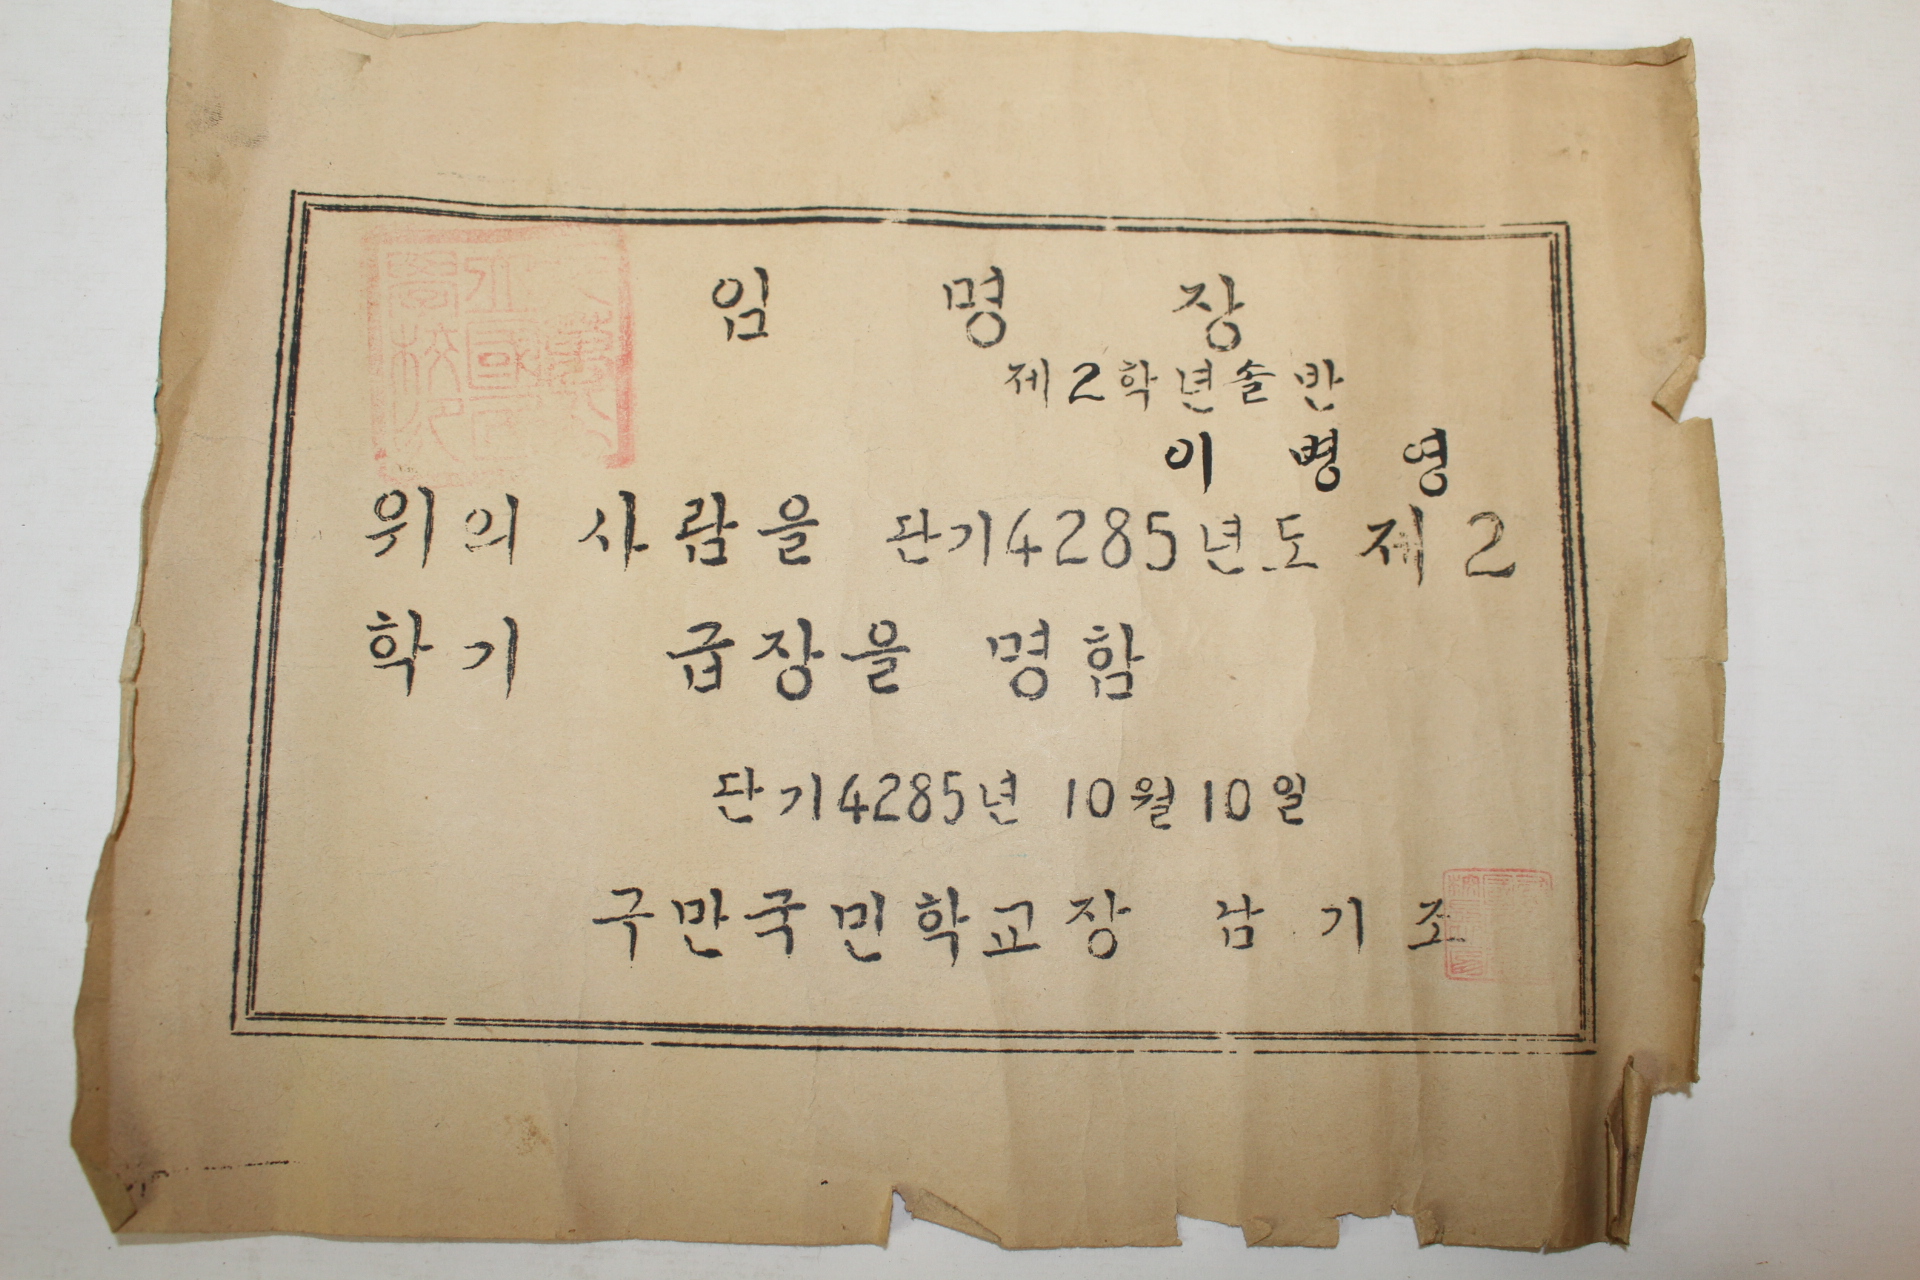 임 명 장
제2학년솔반
이 병 영
위의 사람을 단기4285년도 제2
학기 급장을 명함
단기4285년 10월10일
구만국민학교장 남 기 조